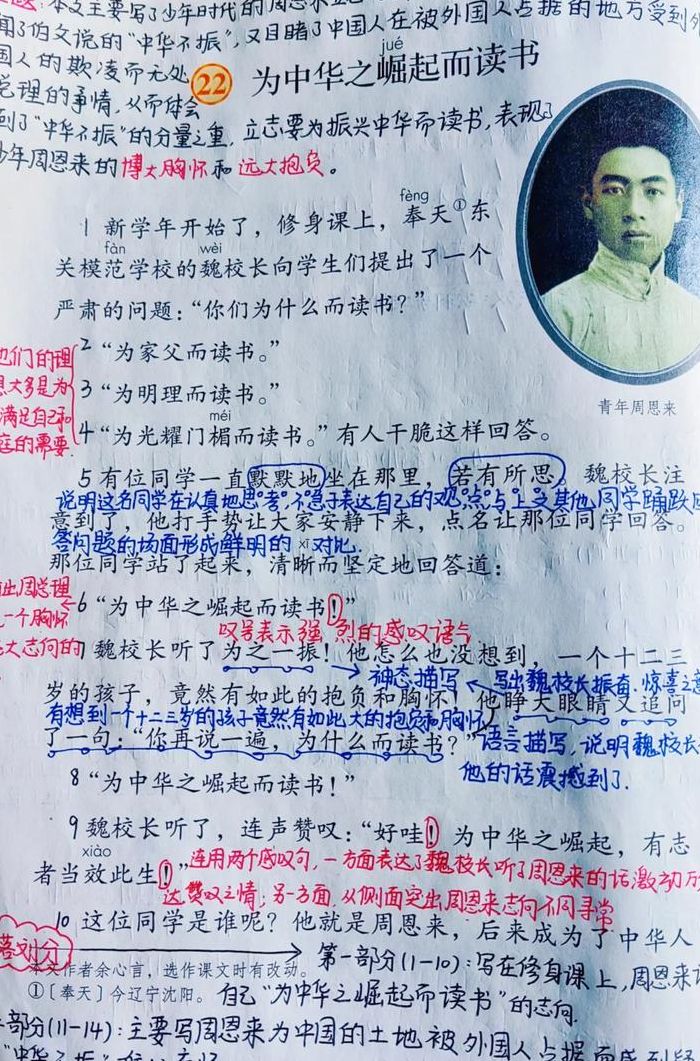 本文主要写了少年时代的周恩来
闻了伯父说的“中华不振”,又目睹了中国人在被外国人占据的地方受到外
国人的欺凌而无处
总理的事情,从而体会
到了“中华不振”的分量之重,立志要为振兴中华而读书,表现了
少年周恩来的博大胸怀和远大抱负。
jué
22 为中华之崛起而读书
fèng
1 新学年开始了,修身课上,奉天①东
fàn wèi
关模范学校的魏校长向学生们提出了一个
严肃的问题:“你们为什么而读书?”
2 “为家父而读书。”
3 “为明理而读书。”
méi
4 “为光耀门楣而读书。”有人干脆这样回答。
他们的理
想大多是为
满足自己和
庭的需要.
青年周恩来
5 有位同学一直默默地坐在那里,若有所思。魏校长注
说明这名同学在认真地思考,不急于表达自己的观点,与上文其他同学踊跃回
意到了,他打手势让大家安静下来,点名让那位同学回答。
答问题的场面形成鲜明的对比.
xī
那位同学站了起来,清晰而坚定地回答道:
6 “为中华之崛起而读书!”
出周总理
一个胸怀
大志向的
叹号表示强烈的感叹语气
7 魏校长听了为之一振!他怎么也没想到,一个十二三
神态描写 写出魏校长振奋、惊喜之
岁的孩子,竟然有如此的抱负和胸怀!他睁大眼睛又追问
有想到一个十二三岁的孩子竟然有如此大的抱负和胸怀
了一句:“你再说一遍,为什么而读书?”
语言描写,说明魏校长
他的话震撼到了.
8 “为中华之崛起而读书!”
9 魏校长听了,连声赞叹:“好哇!为中华之崛起,有志
xiào
者当效此生!”
连用两个感叹句,一方面表达了魏校长听了周恩来的话激动万
达赞叹之情;另一方面,从侧面突出周恩来志向不同寻常
10 这位同学是谁呢?他就是周恩来,后来成为了中华人
落划分
第一部分(1-10):写在修身课上,周恩来
本文作者余心言,选作课文时有改动。
①〔奉天〕今辽宁沈阳。
自己“为中华之崛起而读书”的志向.
部分(11-14):主要写周恩来为中国的土地被外国人占据而感到
“中华不振”